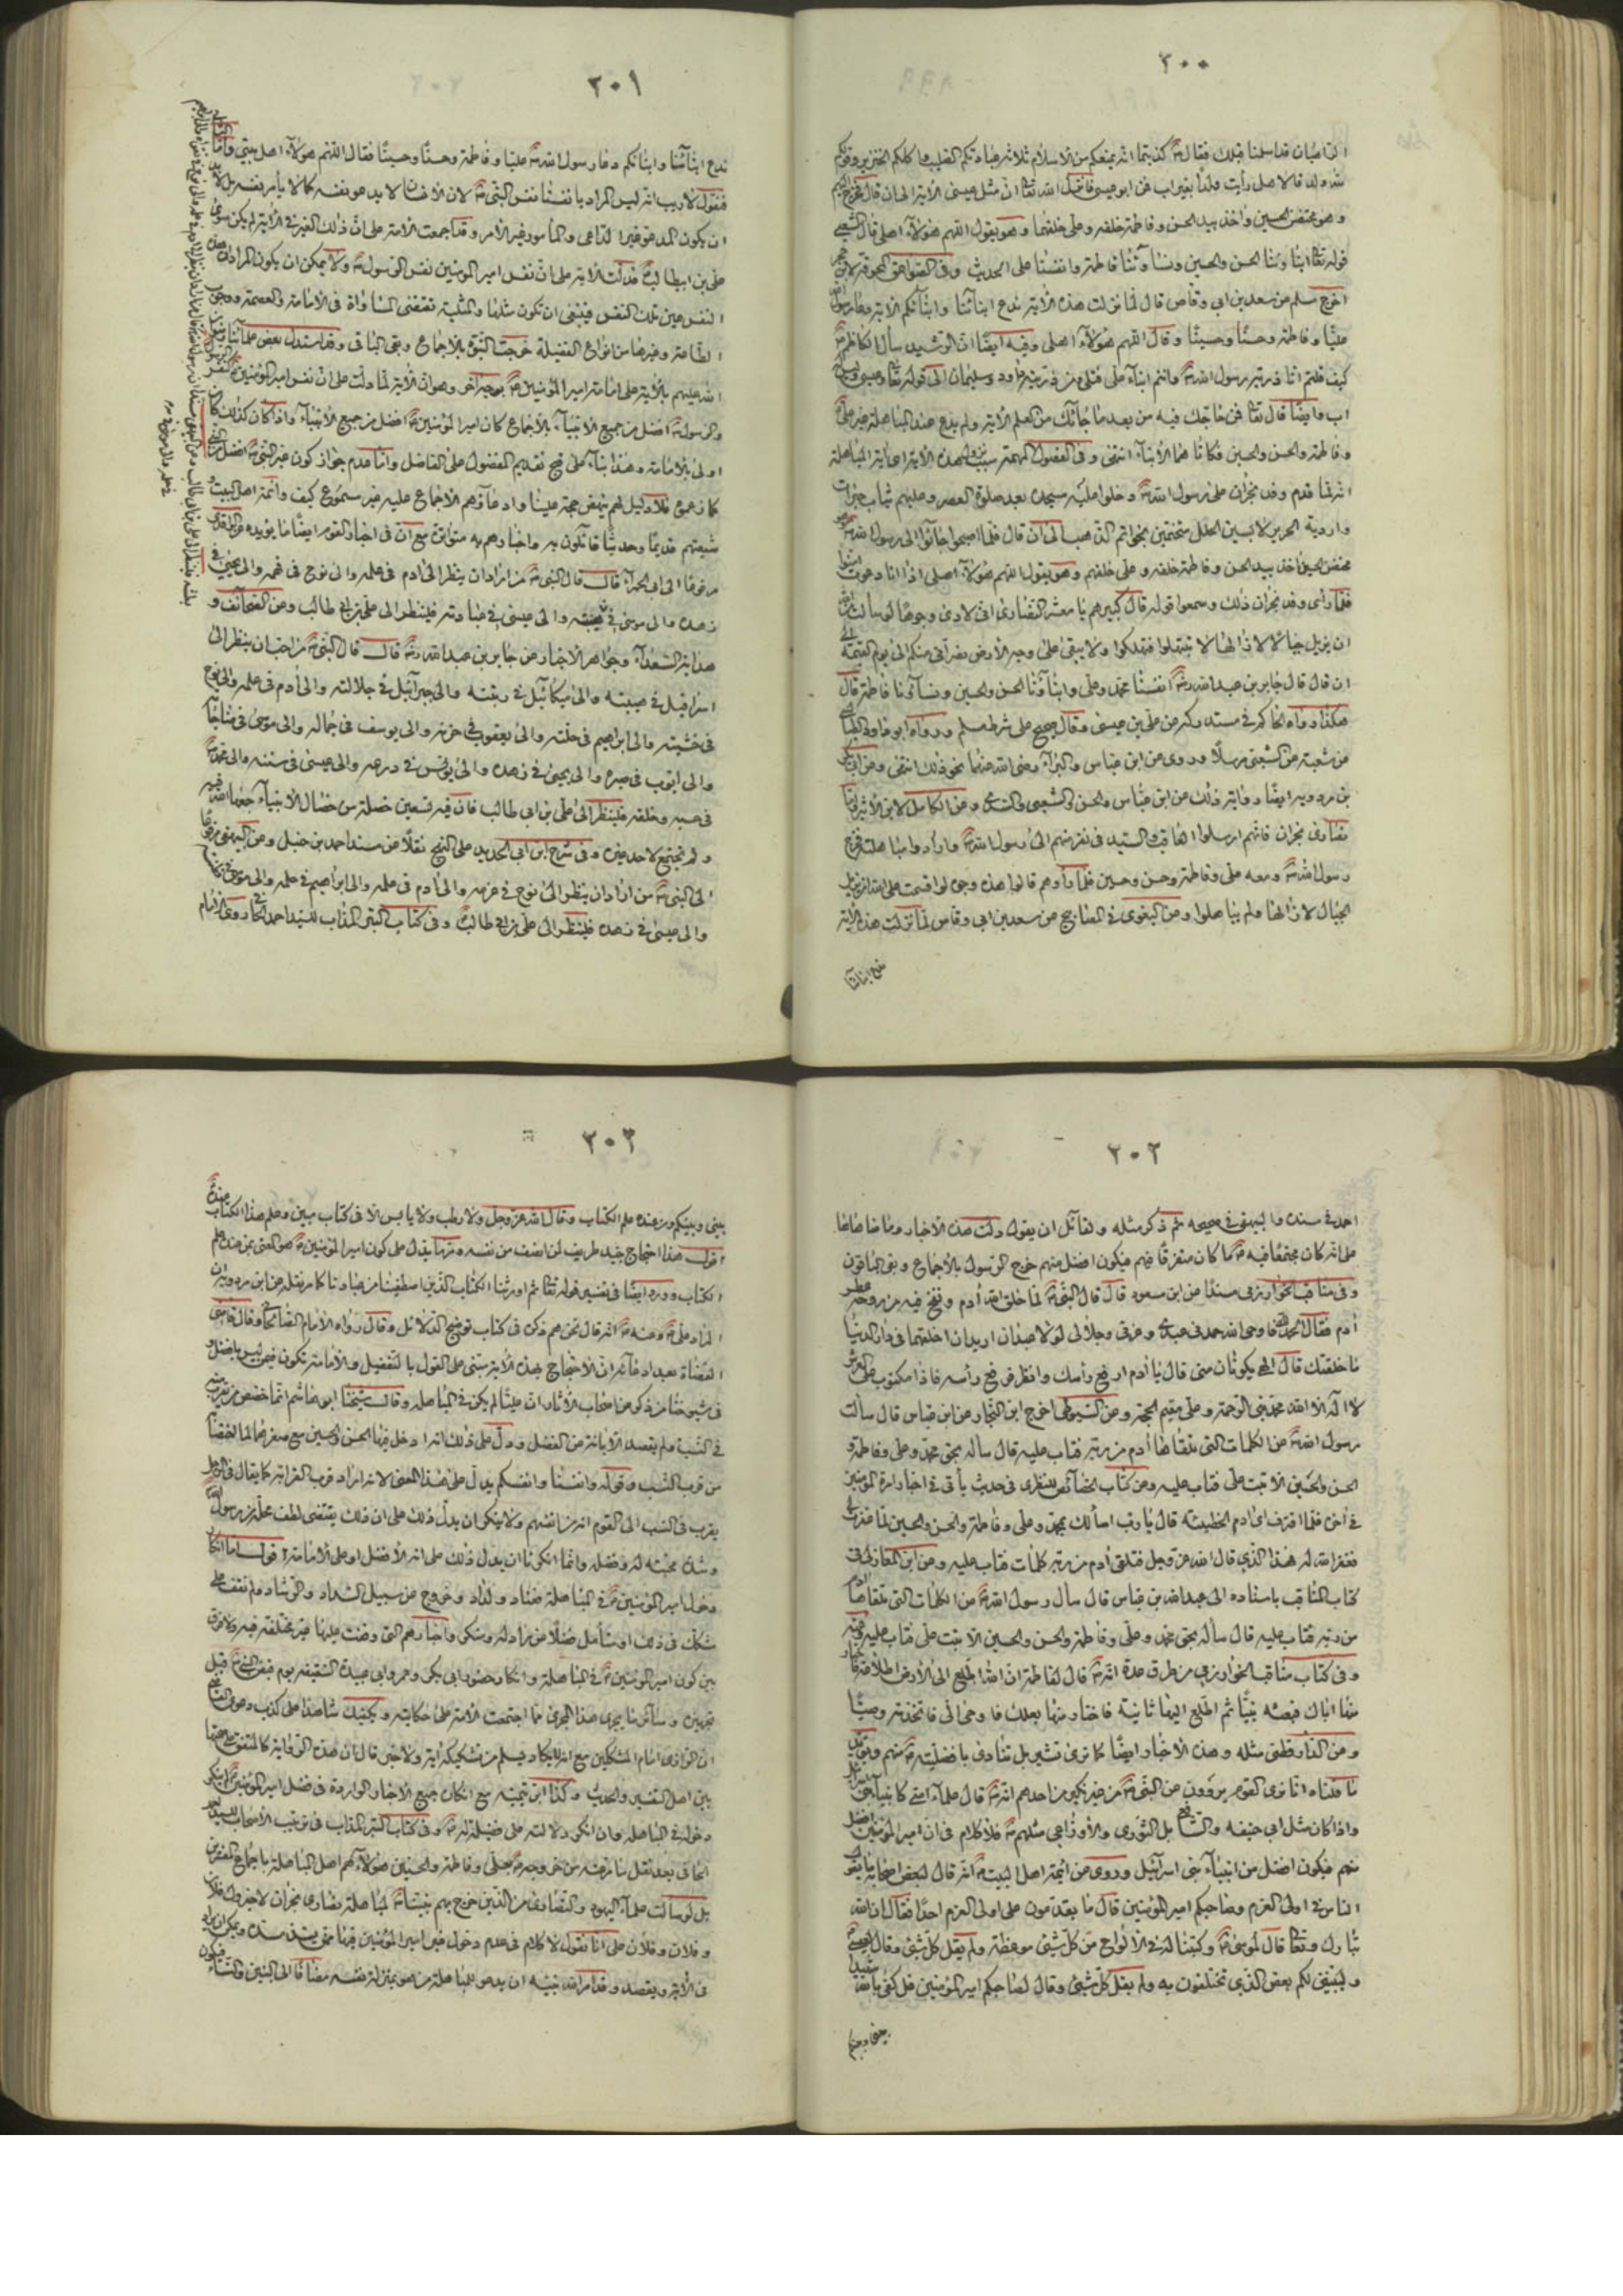 ٢٠٠
الراهبان قد اسلمنا قبلك فقال كذبتما انه يمنعكم من الاسلام ثلاثة عبادتكم الصليب واكلكم الخنزير وقولكم
لله ولد قالا هل رأيت ولدا بغير اب فمن ابو عيسى فانزل الله تعالى ان مثل عيسى الآية الى ان قال فخرج
وهو محتضن الحسين واخذ بيد الحسن وفاطمة خلفه وعلى خلفها وهو يقول اللهم هؤلاء اهلى قال الشعبى
قوله تعالى ابناءنا الحسن والحسين ونساءنا فاطمة وانفسنا على الحديث وفى الصواعق المحرقة لابن حجر
اخرج مسلم عن سعد بن ابى وقاص قال لما نزلت هذه الآية ندع ابنائنا وابنائكم الآية دعا رسول
عليا وفاطمة وحسنا وحسينا وقال اللهم هؤلاء اهلى وفيه ايضا ان الرشيد سأل الكاظم
كيف قلتم انا ذرية رسول الله وانتم ابناء على فتلى من ذريته داود وسليمان الى قوله تعالى وعيسى وليس له
اب وايضا قال تعالى فمن حاجك فيه من بعد ما جائك من العلم الآية ولم يدع عند المباهلة غير على
وفاطمة والحسن والحسين فكانا هما الأبناء انتهى وفى الفصول المهمة سبب نزول هذه الآية اى آية المباهلة
انه لما قدم وفد نجران على رسول الله دخلوا عليه مسجده بعد صلوة العصر وعليهم ثياب حبرات
واردية الحرير لابسين الحلل متختمين بخواتم الذهب الى ان قال فلما اصبحوا جائوا الى رسول الله
محتضن الحسين اخذ بيد الحسن وفاطمة خلفه وعلى خلفهم وهو يقول اللهم هؤلاء اهلى اذا انا دعوت امنوا
فلما رأى وفد نجران ذلك وسمعوا قوله قال كبيرهم يا معشر النصارى انى لارى وجوها لو سألت الله
ان يزيل جبالا لازالها لا تبتهلوا فتهلكوا ولا يبقى على وجه الأرض نصرانى منكم الى يوم القيمة الى
ان قال قال جابر بن عبد الله انفسنا محمد وعلى وابناؤنا الحسن والحسين ونساؤنا فاطمة قال
هكذا رواه الحاكم فى مستدركه عن على بن عيسى وقال صحيح على شرط مسلم ورواه ابو داود الطيالسى
عن شعبة عن الشعبى مرسلا وروى عن ابن عباس والبراء رضى الله عنهما نحو ذلك انتهى وعن ابى بكر
بن مردويه ايضا رواية ذلك عن ابن عباس والحسن والشعبى والسدى وعن الكامل لابن الأثير واما
نصارى نجران فانهم ارسلوا العاقب والسيد فى نفر منهم الى رسول الله وارادوا مباهلته فخرج
رسول الله ومعه على وفاطمة وحسن وحسين فلما رأوهم قالوا هذه وجوه لو اقسمت على الله ان يزيل
الجبال لازالها ولم يباهلوا وعن البغوى فى المصابيح عن سعد بن ابى وقاص لما نزلت هذه الآية
ندع ابنائنا
٢٠١
ندع ابنائنا وابنائكم دعا رسول الله عليا وفاطمة وحسنا وحسينا فقال اللهم هؤلاء اهل بيتى
فنقول لاريب انه ليس المراد بانفسنا نفس النبى لان الانسان لا يدعو نفسه كما لا يأمر نفسه بل لابد
ان يكون المدعو غير الداعى والمأمور غير الأمر وقد اجمعت الامة على ان ذلك الغير فى الآية لم يكن سوى
على بن ابيطالب فدلت الآية على ان نفس امير المومنين نفس الرسول ولا يمكن ان يكون المراد ان هذه
النفس عين تلك النفس فينبغى ان تكون مثلها والمثلية تقتضى المساواة فى الامامة والعصمة ووجوب
الطاعة وغيرها من انواع الفضيلة خرجت النبوة بالاجماع وبقى الباقى وقد استدل بعض علمائنا رضوان
الله عليهم بالآية على امامة امير المؤمنين بوجه اخر وهو ان الآية لما دلت على ان نفس امير المؤمنين نفس
والرسول افضل من جميع الأنبياء بالاجماع كان امير المؤمنين افضل من جميع الأنبياء واذا كان كذلك كان
اولى بالامامة وهذا بناء على قبح تقديم المفضول على الفاضل واما عدم جواز كون غير النبى افضل من
كما زعموا فلا دليل لهم ينهض حجة علينا وادعاؤهم الاجماع عليه غير مسموع كيف وائمة اهل البيت
شيعتهم قديما وحديثا قائلون به واخبارهم به متواترة مع ان فى اخبار القوم ايضا ما يؤيده
مرفوعا الى ابى الحمراء قال قال النبى من اراد ان ينظر الى آدم فى علمه والى نوح فى فهمه والى يحيى فى
زهده والى موسى فى بطشه والى عيسى فى عبادته فلينظر الى على بن ابى طالب وعن الصحائف و
هداية السعداء وجواهر الاخبار عن جابر بن عبد الله قال قال النبى من احب ان ينظر الى
اسرافيل فى هيبته والى ميكائيل فى رتبته والى جبرائيل فى جلالته والى آدم فى علمه والى نوح
فى خشيته والى ابراهيم فى خلته والى يعقوب فى حزنه والى يوسف فى جماله والى موسى فى مناجاته
والى ايوب فى صبره والى يحيى فى زهده والى يونس فى ورعه والى عيسى فى سنته والى محمد
فى حسبه وخلقه فلينظر الى على بن ابى طالب فان فيه تسعين خصلة من خصال الأنبياء جمعها الله فيه
ولم تجتمع لاحد غيره وفى شرح ابن ابى الحديد على النهج نقلا من مسند احمد بن حنبل وعن البيهقى مرفوعا
الى النبى من اراد ان ينظر الى نوح فى عزمه والى آدم فى علمه والى ابراهيم فى حلمه والى موسى فى
والى عيسى فى زهده فلينظر الى على بن ابى طالب وفى كتاب التبر المذاب للسيد احمد روى الامام
٢٠٢
احمد فى مسنده والبيهقى فى صحيحه ثم ذكر مثله ولقائل ان يقول دلت هذه الاخبار وما ضاهاها
على انه كان مجتمعا فيه ما كان متفرقا فيهم فيكون افضل منهم خرج الرسول بالأجماع وبقى الباقون
وفى مناقب الخوارزمى مسندا عن ابن مسعود قال قال النبى لما خلق الله آدم ونفخ فيه من روحه عطس
آدم فقال الحمد لله فاوحى الله حمدنى عبدى وعزتى وجلالى لولا عبدان اريد ان اخلقهما فى دار الدنيا
ما خلقتك قال الهى يكونان منى قال يا آدم ارفع رأسك وانظر فرفع رأسه فاذا مكتوب على العرش
لا اله الا الله محمد نبى الرحمة وعلى مقيم الحجة وعن السيوطى اخرج ابن النجار عن ابن عباس قال سألت
رسول الله عن الكلمات التى تلقاها آدم من ربه فتاب عليه قال سأله بحق محمد وعلى وفاطمة و
الحسن والحسين الا تبت على فتاب عليه وعن كتاب الخصائص للنطنزى فى حديث يأتى فى اخبار امرة المؤمنين
فى آخره فلما اقترف اى آدم الخطيئة قال يا رب اسألك بمحمد وعلى وفاطمة والحسن والحسين لما غفرت لى
فغفر الله له فهذا الذى قال الله عز وجل فتلقى آدم من ربه كلمات فتاب عليه وعن ابن المغازلى فى
كتاب المناقب باسناده الى عبد الله بن عباس قال سأل رسول الله عن الكلمات التى تلقاها آدم
من ربه فتاب عليه قال سأله بحق محمد وعلى وفاطمة والحسن والحسين الا تبت على فتاب عليه
وفى كتاب مناقب الخوارزمى من طرق عدة انه قال لفاطمة ان الله اطلع الى الأرض اطلاعة فاختار
منها اباك فبعثه نبيا ثم اطلع اليها ثانية فاختار منها بعلك فاوحى الى فاتخذته وصيا
وعن الدارقطنى مثله وهذه الاخبار ايضا كما ترى تشير بل تنادى بافضليته منهم ويؤيد
ما قلناه انا نرى القوم يروون عن النبى من غير نكير من احدهم انه قال علماء امتى كانبياء بنى اسرائيل
واذا كان مثل ابى حنيفه والشافعى بل الثورى والأوزاعى مثلهم فلا كلام فى ان امير المؤمنين افضل
منهم فيكون افضل من انبياء بنى اسرائيل وروى عن ائمة اهل البيت انه قال لبعض اصحابه ما يقول
الناس فى اولى العزم وصاحبكم امير المؤمنين قال ما يقدمون على اولى العزم احدا فقال ان الله
تبارك وتعالى قال لموسى وكتبنا له فى الألواح من كل شئ موعظة ولم يقل كل شئ وقال لعيسى
وليبين لكم بعض الذى تختلفون فيه ولم يقل كل شئ وقال لصاحبكم امير المؤمنين قل كفى بالله شهيدا
بينى وبينكم
٢٠٣
بينى وبينكم ومن عنده علم الكتاب وقال الله عز وجل ولا رطب ولا يابس الا فى كتاب مبين وعلم هذا الكتاب عنده
اقول هذا احتجاج جيد ظريف لمن انصف من نفسه ومما يدل على كون امير المؤمنين هو المعنى بمن عنده علم
الكتاب وورد ايضا فى تفسير قوله تعالى ثم اورثنا الكتاب الذين اصطفينا من عبادنا كما مر نقله عن ابن مردويه ان
المراد على وعنه انه قال نحن هم ذكره فى كتاب توضيح الدلائل وقال رواه الأمام الصالحانى وقال قاضى
القضاة بعد ادعائه ان الأحتجاج بهذه الآية مبنى على القول بالتفضيل والأمامة تكون فيمن ليس بافضل و
فى شيوخنا من ذكر عن اصحاب الأثار ان عليا لم يكن فى المباهلة وقال شيخنا ابو هاشم انما خصص من تقرب منه
فى النسب ولم يقصد الأبانة عن الفضل ودل على ذلك انه ادخل فيها الحسن والحسين مع صغرهما لما اختصا
من قرب النسب وقوله وانفسنا وانفسكم يدل على هذا المعنى لانه اراد قرب القرابة كما يقال فى الرجل
يقرب فى النسب الى القوم انه من انفسهم ولا ينكر ان يدل ذلك على ان ذلك يقتضى لطف محله من رسول الله
وشدة محبته له وفضله وانما انكرنا ان يدل ذلك على انه الأفضل او على الأمامة اقول اما انكار
دخول امير المؤمنين فى المباهلة فعناد ولداد وخروج عن سبيل السداد والرشاد ولم نقف على
مشكك فى ذلك او متأمل فضلا عن راد له ومنكر واخبارهم التى وقفت عليها غير مختلفة فيه ولا فرق
بين كون امير المؤمنين فى المباهلة وانكار حضور ابى بكر وعمر وابى عبيدة السقيفة يوم قبض النبى قبل
تجهيزه وسائر ما يجرى هذا المجرى مما اجتمعت الأمة على حكايته ويكفيك شاهدا على كذب دعوى القاضى
ان الرازى امام المشككين مع انه لا يكاد يسلم من تشكيكه آية ولا خبر قال ان هذه الرواية كالمتفق على صحتها
بين اهل التفسير والحديث وكذا ابن تيميه مع انكاره جميع الاخبار الواردة فى فضل امير المؤمنين لم ينكر
دخوله فى المباهلة وان انكر دلالته على فضيلة له وفى كتاب التبر المذاب فى ترتيب الأصحاب للسيد احمد
الحافى بعد نقل ما نزل من خروجه بعلى وفاطمة والحسنين هؤلاء هم اهل المباهلة باجماع المفسرين
بل لو سألت علماء اليهود والنصارى من الذين خرج بهم نبينا لمباهلة نصارى نجران لاخبروك
وفلان وفلان على انا نقول لا كلام فى عدم دخول غير امير المؤمنين
فى الآية ويقصد وقد امر الله نبيه ان يدعو للمباهلة من هو بمنزلة نفسه مضافا الى البنين والنساء فيكون